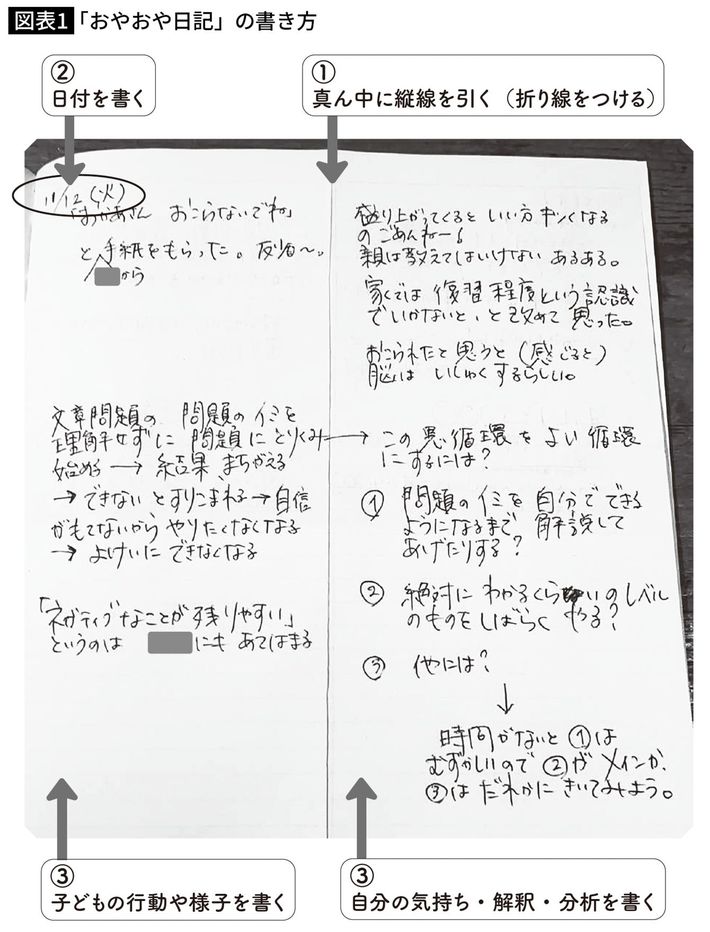 図表1「おやおや日記」の書き方
②
日付を書く
①
真ん中に縦線を引く（折り線をつける）
11/12(火)
「おかあさん おこらないでね」
と手紙をもらった。反省〜。
から
文章問題の 問題のイミを
理解せずに 問題に とりくみ→
始める → 結果、まちがえる
→ できない とすりこまれる→自信
がもてないから やりたくなくなる
→ よけいに できなくなる
「ネガティブなことが 残りやすい」
というのは にも あてはまる
盛り上がってくると いい方 キツくなる
の ごめんねー。
親は教えてはいけない あるある。
家では 復習 程度という認識
でいかないと、と改めて 思った。
おこられたと思うと(感じると)
脳は いしゅくするらしい。
この 悪循環を よい 循環
にするには?
① 問題のイミを 自分で できる
ようになるまで 解説して
あげたりする?
② 絶対に わかるくらいのレベル
のものをしばらく やる?
③ 他には?
↓
時間がないと ①は
むずかしいので ②が メインか、
③は だれかに きいてみよう。
③
子どもの行動や様子を書く
③
自分の気持ち・解釈・分析を書く